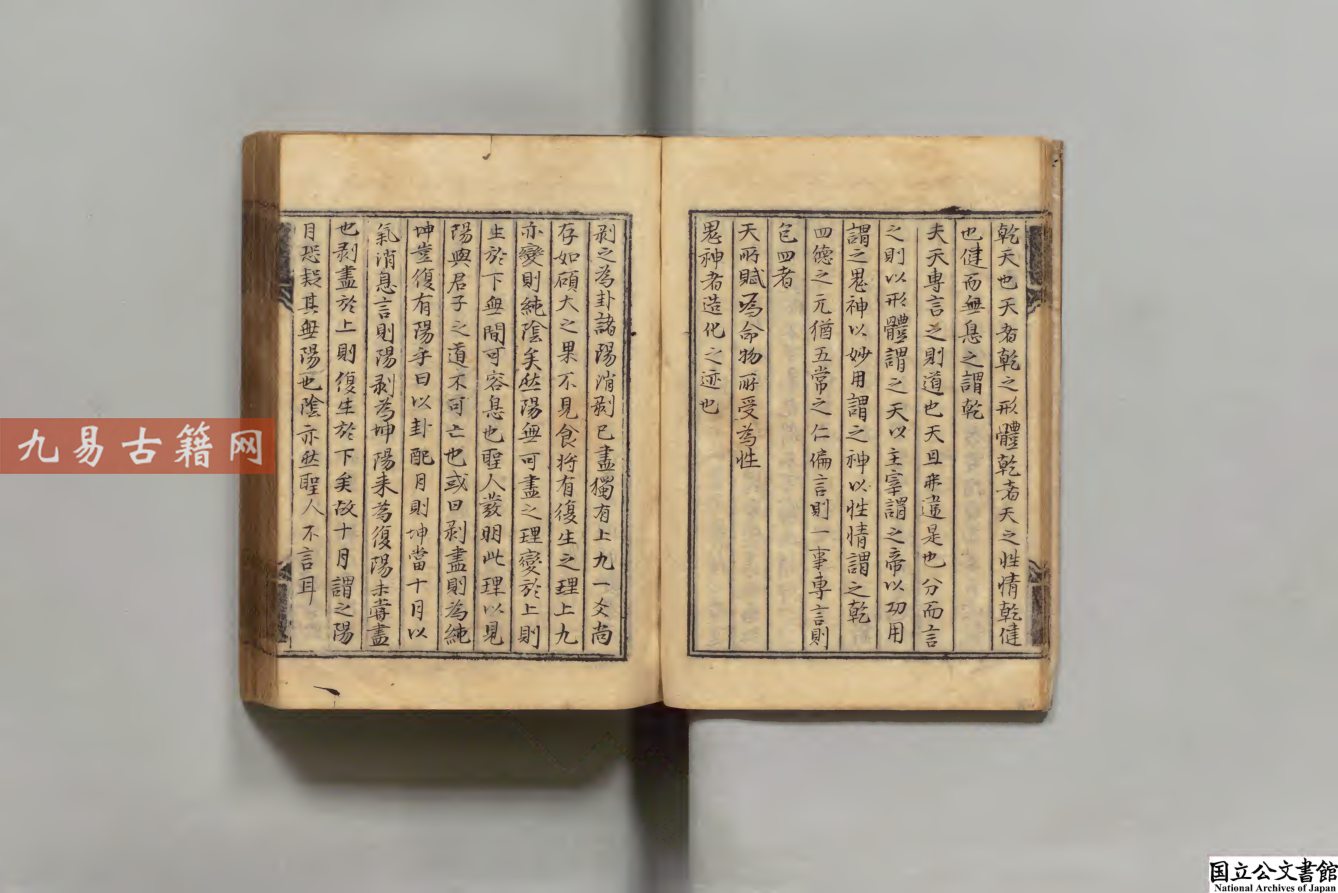 乾天也天者乾之形體乾者天之性情乾健
也健而無息之謂乾
夫天專言之則道也天且弗違是也分而言
之則以形體謂之天以主宰謂之帝以功用
謂之鬼神以妙用謂之神以性情謂之乾
四德之元猶五常之仁偏言則一事專言則
包四者
天所賦為命物所受為性
鬼神者造化之迹也
剥之為卦諸陽消剥已盡獨有上九一爻尚
存如碩大之果不見食將有復生之理上九
亦變則純陰矣然陽無可盡之理變於上則
生於下無間可容息也聖人發明此理以見
陽與君子之道不可亡也或曰剥盡則為純
坤豈復有陽乎曰以卦配月則坤當十月以
氣消息言則陽剥為坤陽来為復陽未嘗盡
也剥盡於上則復生於下矣故十月謂之陽
月恐疑其無陽也陰亦然聖人不言耳
九易古籍网
国立公文書館
National Archives of Japan